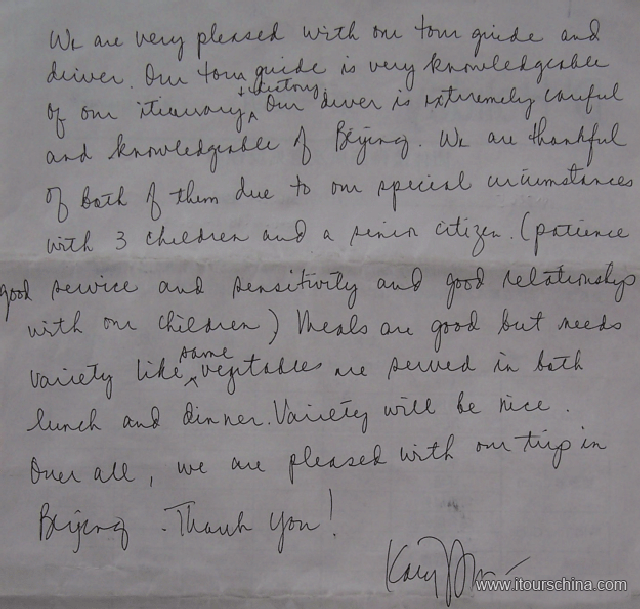 We are very pleased with our tour guide and
driver. Our tour guide is very knowledgeable
of our itinerary + history. Our driver is extremely careful
and knowledgeable of Beijing. We are thankful
of both of them due to our special circumstances
with 3 children and a senior citizen. (patience
good service and sensitivity and good relationship
with our children) Meals are good but needs
variety like same vegetables are served in both
lunch and dinner. Variety will be nice.
Over all, we are pleased with our trip in
Beijing. Thank you!
www.itourschina.com